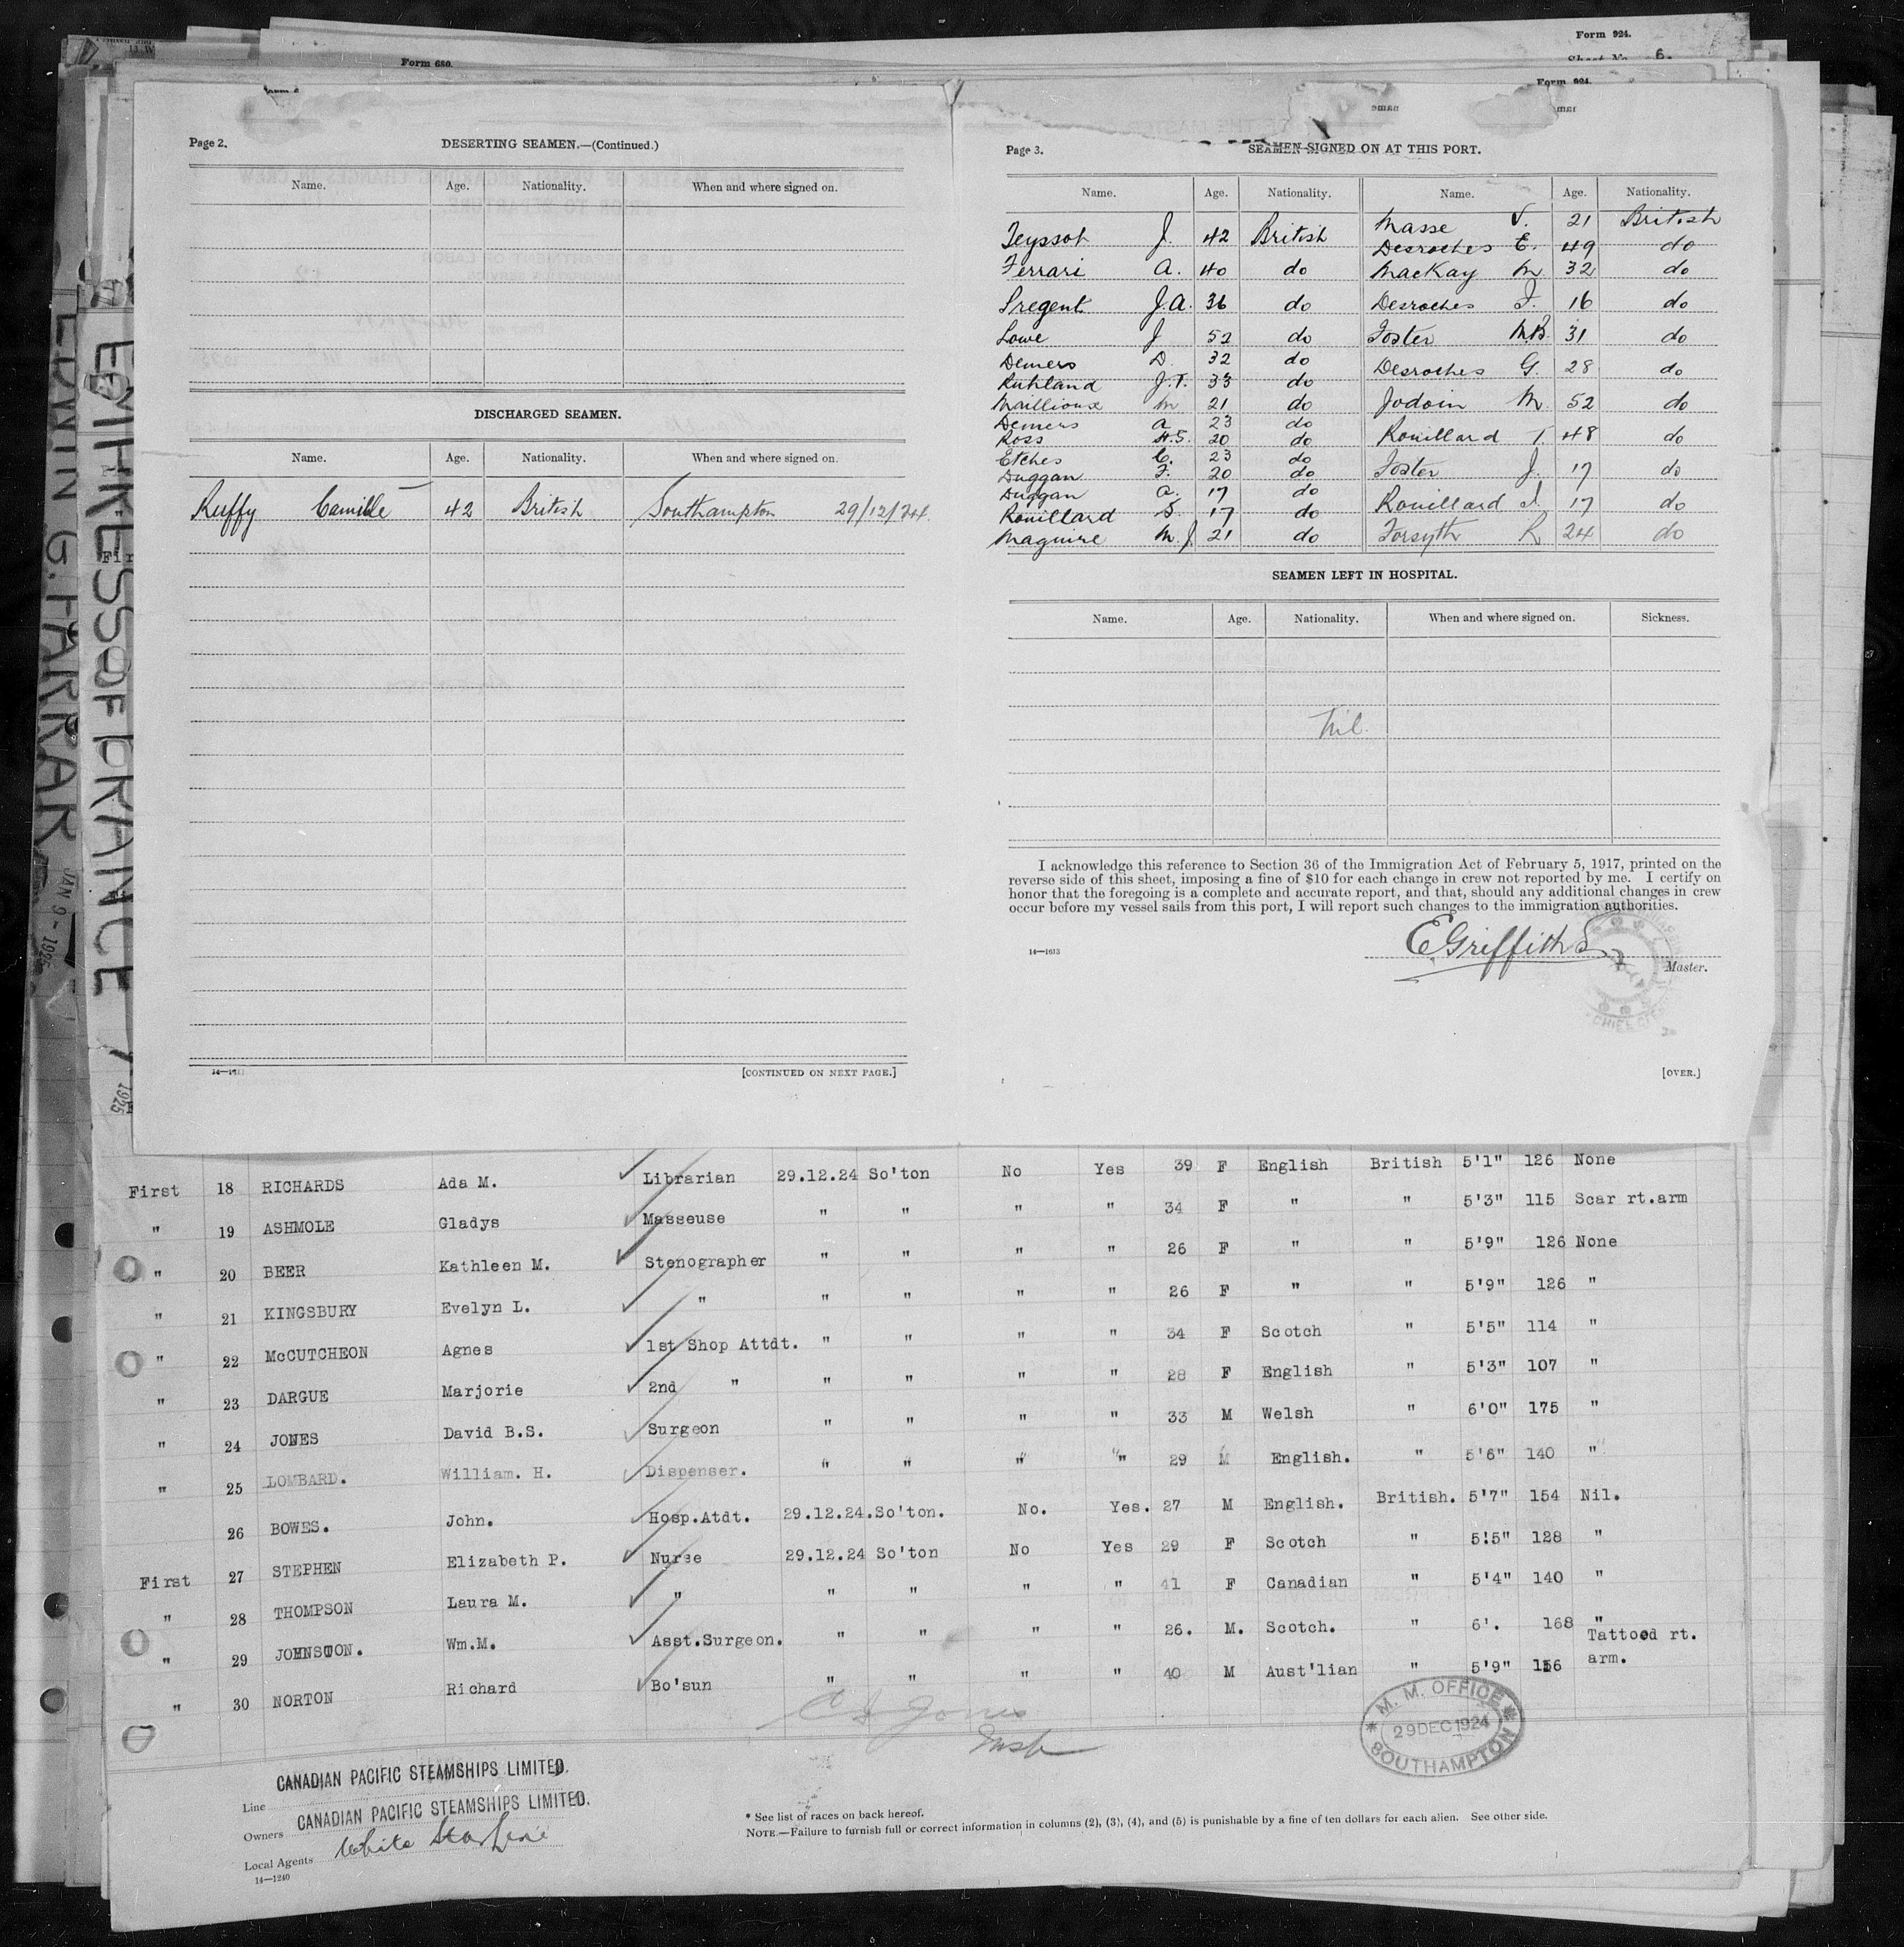 Form 924.
Form 680.
Sheet No. 6.
Form 924.
EDWIN G. FARRAR
JAN 9 - 1925
EMPRESS OF FRANCE
1925
Page 2.
DESERTING SEAMEN.—(Continued.)
Name. Age. Nationality. When and where signed on.
DISCHARGED SEAMEN.
Name. Age. Nationality. When and where signed on.
Ruffy Camille 42 British Southampton 29/12/24.
[CONTINUED ON NEXT PAGE.]
Page 3.
SEAMEN SIGNED ON AT THIS PORT.
Name. Age. Nationality. Name. Age. Nationality.
Teyssot J. 42 British Masse V. 21 British
Desroches E. 49 do
Ferrari A. 40 do MacKay M. 32 do
Sregent J.A. 36 do Desroches J. 16 do
Lowe J 52 do Foster M.B. 31 do
Demers D. 32 do
Desroches G. 28 do
Ruhland J.T. 33 do
Maillioux M 21 do Jodoin M. 52 do
Demers A 23 do
Ross H.S. 20 do Rouillard T. 48 do
Etches C. 23 do
Duggan F. 20 do Foster J. 17 do
Duggan A. 17 do
Rouillard S. 17 do Rouillard J. 17 do
Maguire M.J. 21 do Forsyth R 24 do
SEAMEN LEFT IN HOSPITAL.
Name. Age. Nationality. When and where signed on. Sickness.
Nil.
I acknowledge this reference to Section 36 of the Immigration Act of February 5, 1917, printed on the
reverse side of this sheet, imposing a fine of $10 for each change in crew not reported by me. I certify on
honor that the foregoing is a complete and accurate report, and that, should any additional changes in crew
occur before my vessel sails from this port, I will report such changes to the immigration authorities.
14—1613
E Griffiths
Master.
[OVER.]
First 18 RICHARDS Ada M. Librarian 29.12.24 So'ton No Yes 39 F English British 5'1" 126 None
" 19 ASHMOLE Gladys Masseuse " " " " 34 F " " 5'3" 115 Scar rt.arm
" 20 BEER Kathleen M. Stenographer " " " " 26 F " " 5'9" 126 None
" 21 KINGSBURY Evelyn L. " " " " " 26 F " " 5'9" 126 "
" 22 McCUTCHEON Agnes 1st Shop Attdt. " " " " 34 F Scotch " 5'5" 114 "
" 23 DARGUE Marjorie 2nd " " " " " 28 F English " 5'3" 107 "
" 24 JONES David B.S. Surgeon " " " " 33 M Welsh " 6'0" 175 "
" 25 LOMBARD. William. H. Dispenser. " " " " 29 M English. " 5'6" 140 "
26 BOWES. John. Hosp.Atdt. 29.12.24.So'ton. No. Yes. 27 M English. British. 5'7" 154 Nil.
First 27 STEPHEN Elizabeth P. Nurse 29.12.24 So'ton No Yes 29 F Scotch " 5'5" 128 "
" 28 THOMPSON Laura M. " " " " " 41 F Canadian " 5'4" 140 "
" 29 JOHNSTON. Wm.M. Asst.Surgeon. " " " " 26. M. Scotch. " 6'. 168 "
" 30 NORTON Richard Bo'sun " " " " 40 M Aust'lian " 5'9" 156 Tattooed rt.
arm.
M. M. OFFICE
29 DEC 1924
SOUTHAMPTON
Line CANADIAN PACIFIC STEAMSHIPS LIMITED.
Owners CANADIAN PACIFIC STEAMSHIPS LIMITED.
Local Agents White Star Line
14—1240
* See list of races on back hereof.
NOTE.—Failure to furnish full or correct information in columns (2), (3), (4), and (5) is punishable by a fine of ten dollars for each alien. See other side.